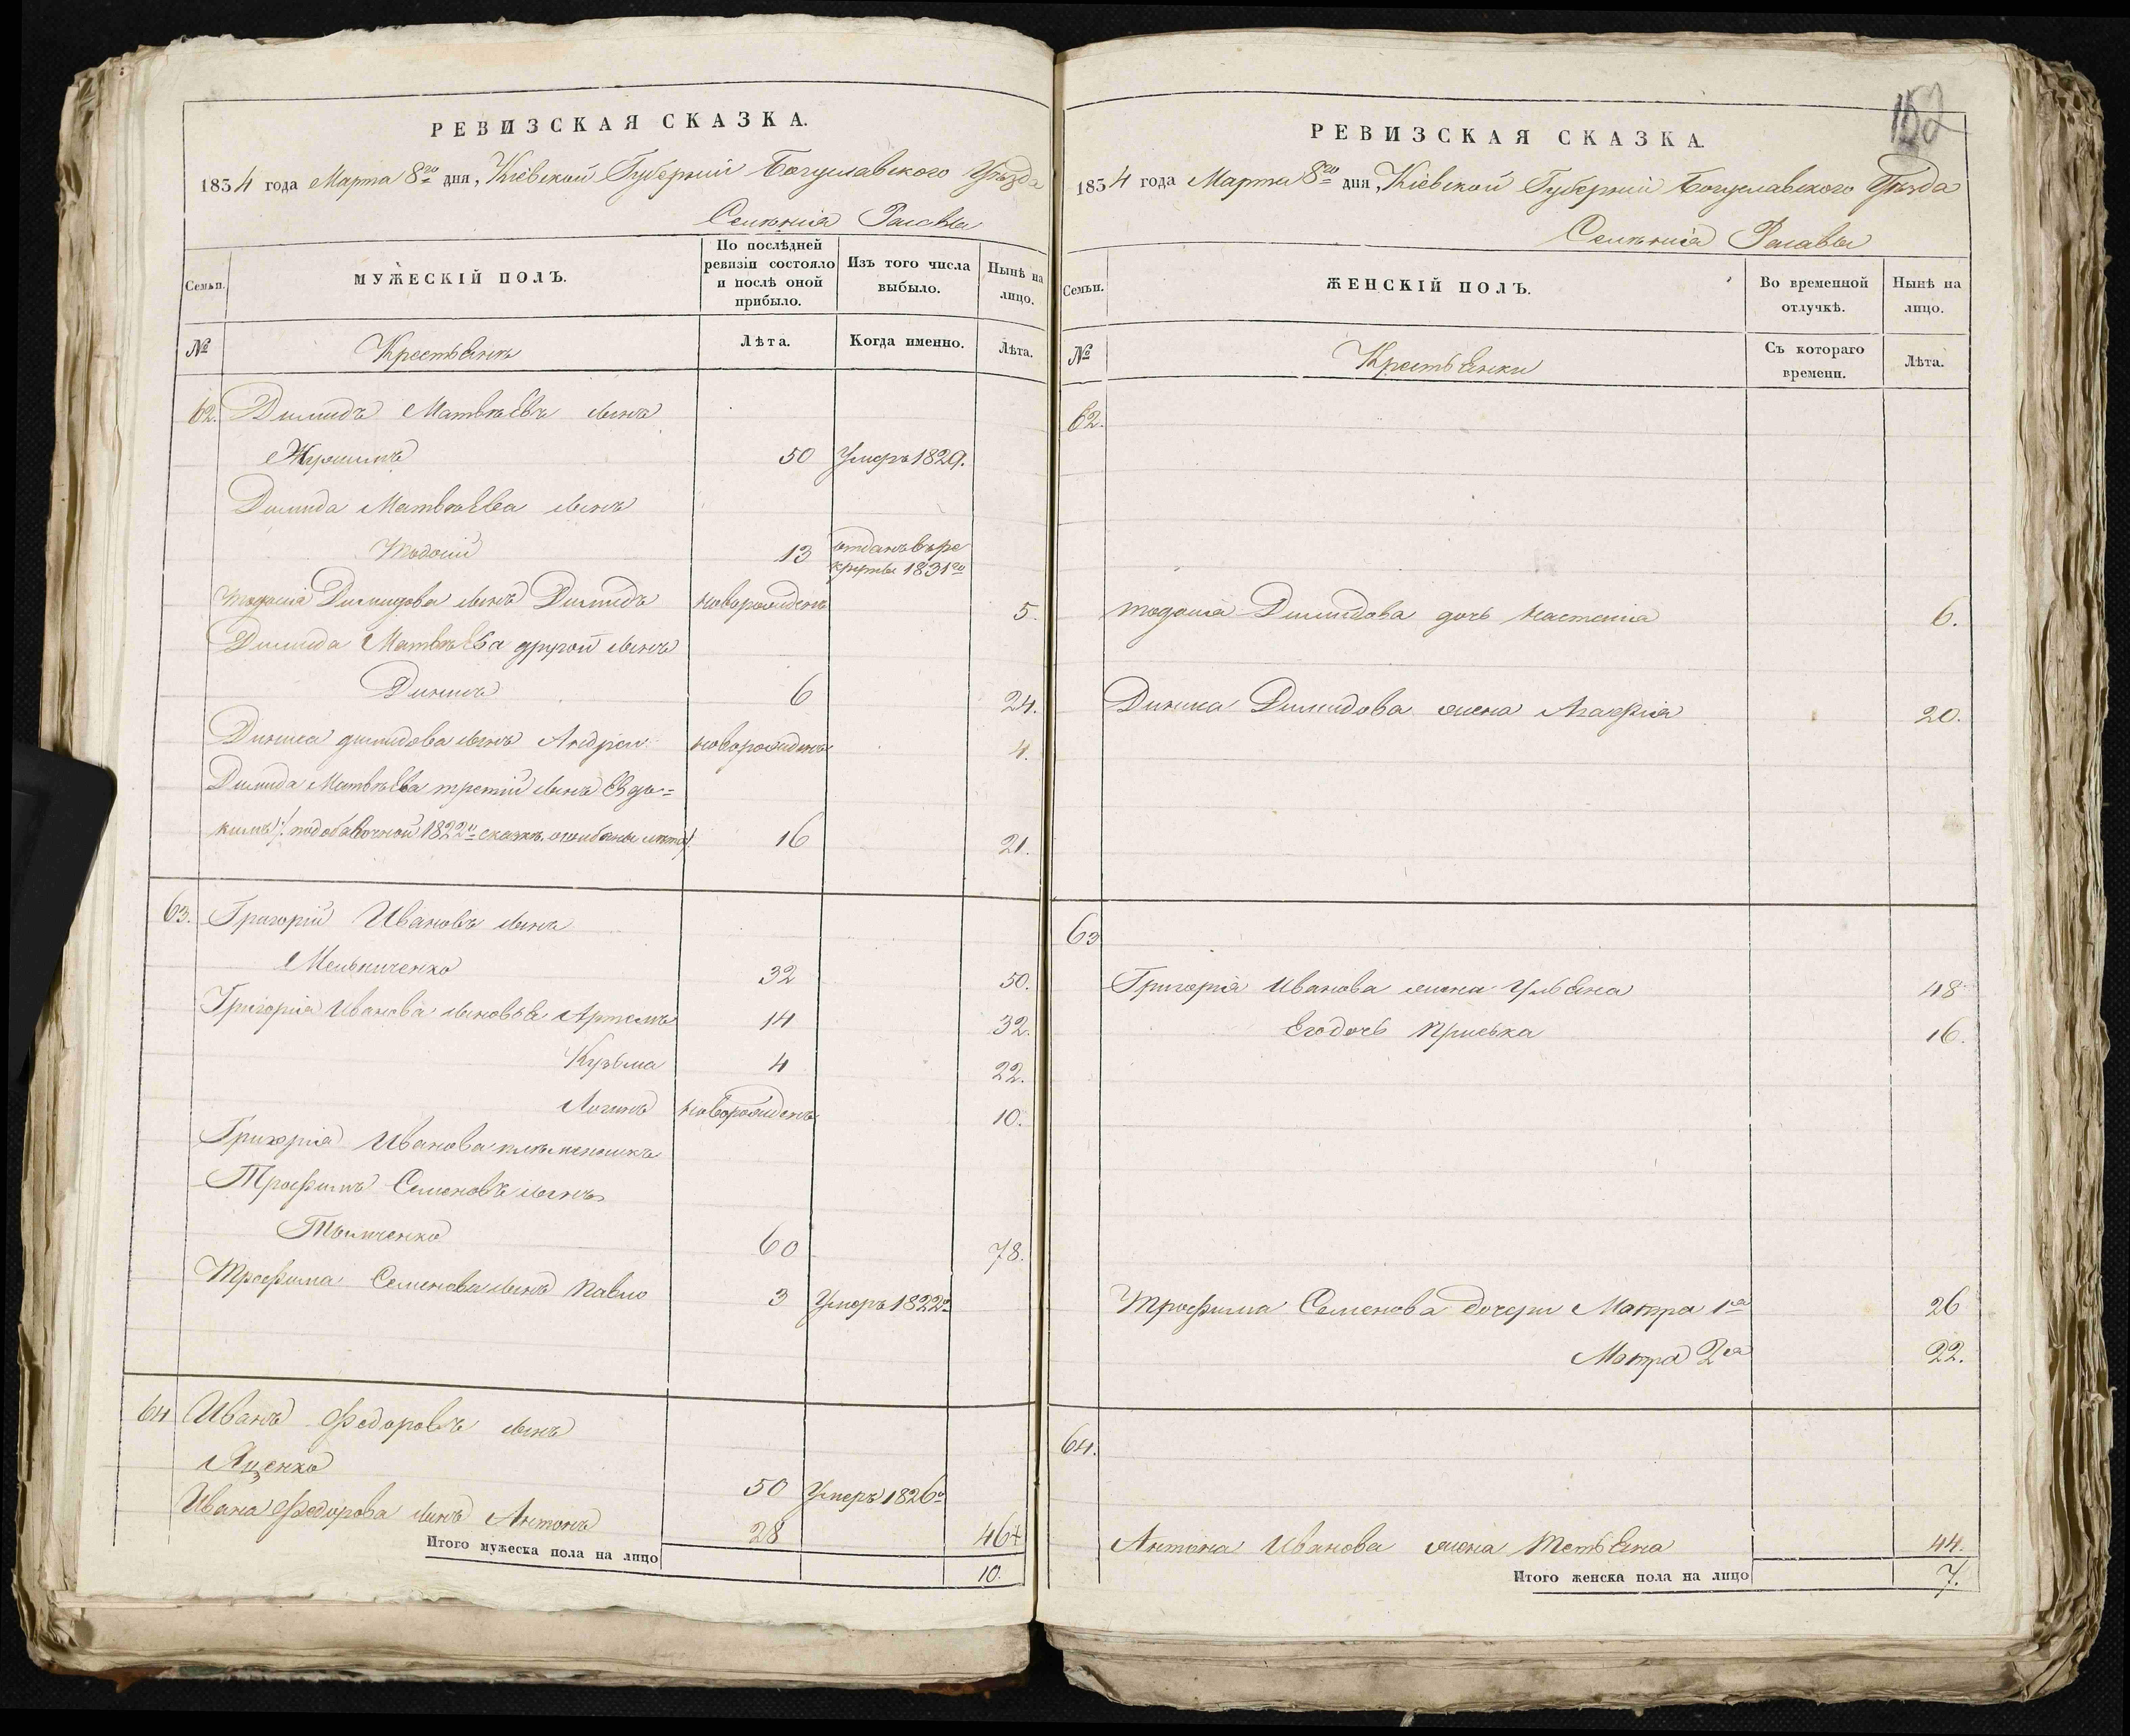 РЕВИЗСКАЯ СКАЗКА.
1834 года Марта 8го дня, Кіевской Губерніи Богуславского Уѣзда
Селенія Расавы
Семьи.
МУЖЕСКІЙ ПОЛЪ.
По послѣдней ревизіи состояло и послѣ оной прибыло.
Изъ того числа выбыло.
Нынѣ на лицо.
№
Крестьянъ
Лѣта.
Когда именно.
Лѣта.
62. Димидъ Матвѣевъ сынъ
50 Умеръ 1829.
Димида Матвѣева сынъ
Тодосій 13 отданъ въ ре
круты 1831го
Тодосія Димидова сынъ Димидъ новорожденъ 5.
Димида Матвѣева другой сынъ
Динисъ 6 24.
Диниса Димидова сынъ Андрей новорожденъ 4.
Димида Матвѣева третій сынъ Евдо=
кимъ /: по добавочной 1822й сказкѣ ошибены лѣта :/ 16 21.
63. Григорій Ивановъ сынъ
Мельниченко 32 50.
Григорія Иванова сыновья Артемъ 14 32.
Кузьма 4 22.
Логинъ новорожденъ 10.
Григорія Иванова племенникъ
Трофимъ Семеновъ сынъ
60 78.
Трофима Семенова сынъ Павло 3 Умеръ 1822го
64 Иванъ Федоровъ сынъ
Яценко 50 Умеръ 1826го
Ивана Федорова сынъ Антонъ 28 46+
Итого мужеска пола на лицо 10.
152
РЕВИЗСКАЯ СКАЗКА.
1834 года Марта 8го дня, Кіевской Губерніи Богуславского Уѣзда
Селенія Расавы
Семьи.
ЖЕНСКІЙ ПОЛЪ.
Во временной отлучкѣ.
Нынѣ на лицо.
№
Крестьянки
Съ котораго времени.
Лѣта.
62.
Тодосія Димидова дочь Настасія 6.
Диниса Димидова жена Агафія 20.
63
Григорія Иванова жена Ульяна 48
Его дочь Приська 16.
Трофима Семенова дочери Мотря 1я 26
Мотря 2я 22.
64.
Антона Иванова жена Тетьяна 44.
Итого женска пола на лицо 7.